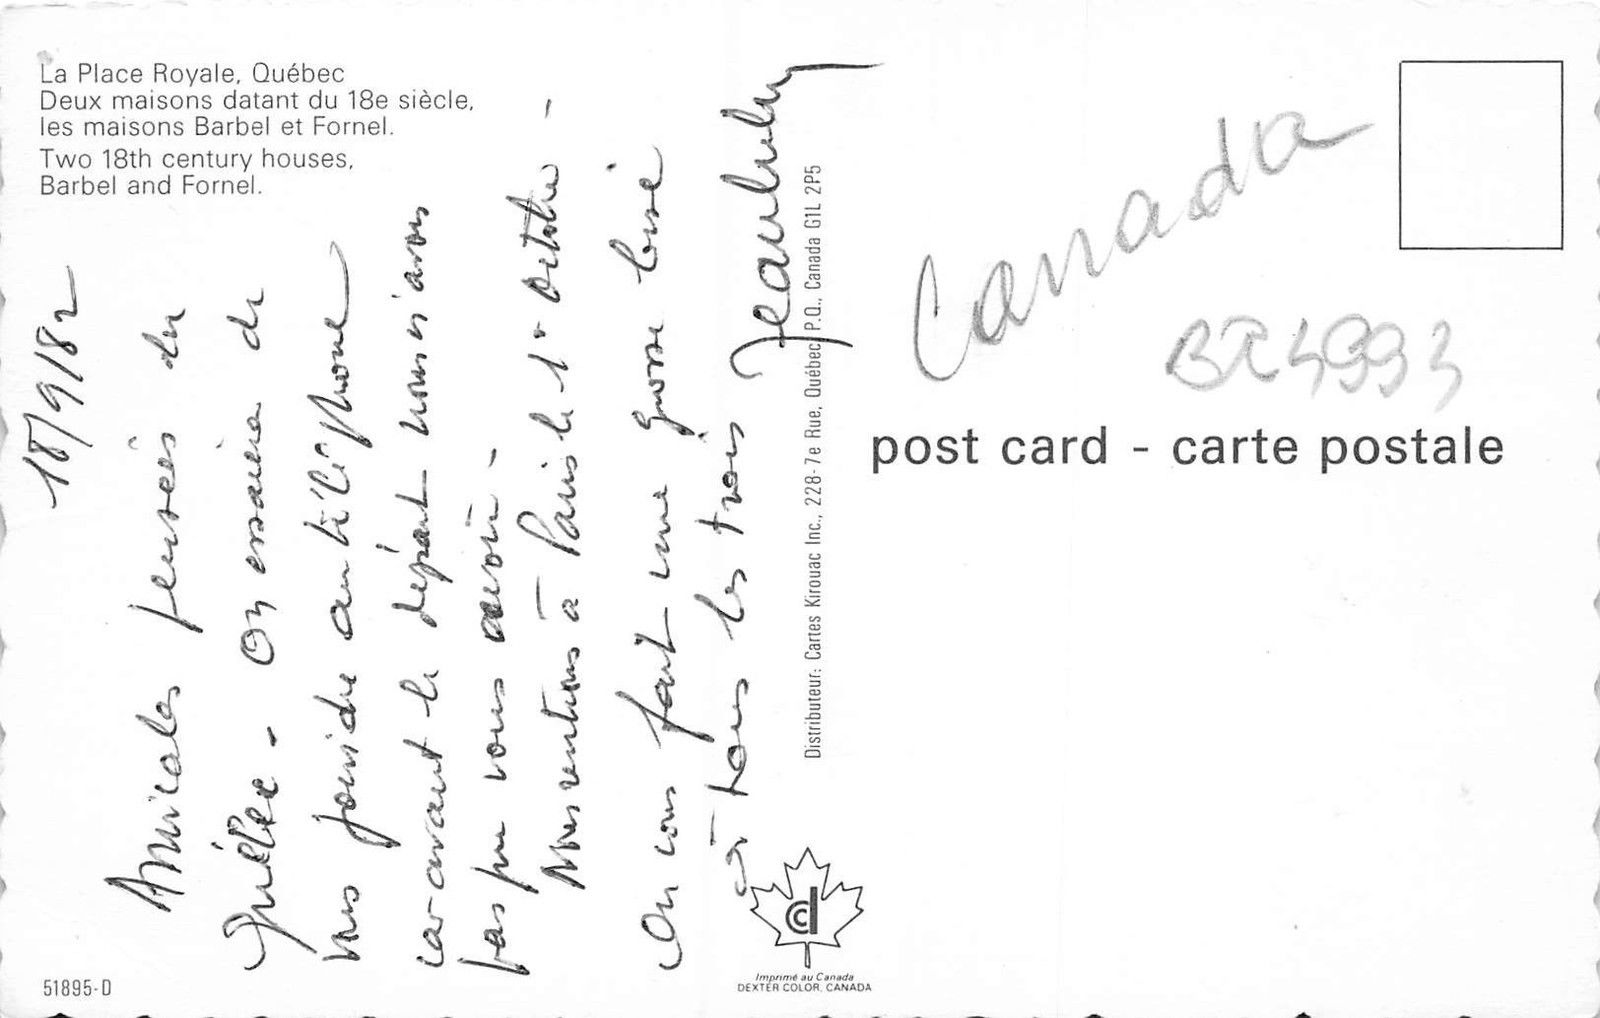 La Place Royale, Québec
Deux maisons datant du 18e siècle,
les maisons Barbel et Fornel.
Two 18th century houses,
Barbel and Fornel.
18/9/82
Amicales pensées du
Québec - On essaiera de
vous joindre au téléphone
car avant le départ nous n'avons
pas pu vous avoir -
Nous rentrons à Paris le 1er octobre -
On vous fait une grosse bise
à tous les trois
Distributeur: Cartes Kirouac Inc., 228-7e Rue, Québec, P.Q., Canada G1L 2P5
Imprimé au Canada
DEXTER COLOR, CANADA
51895-D
Canada
post card - carte postale